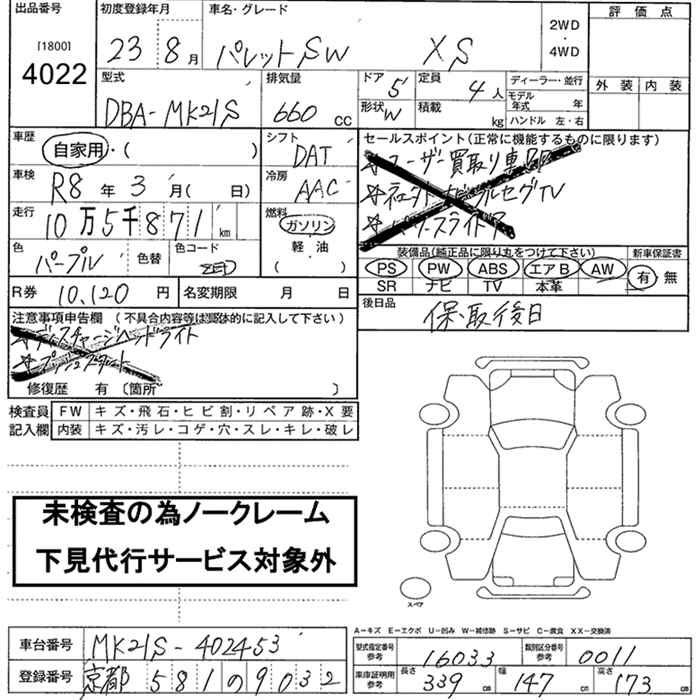 出品番号 初度登録年月 車名・グレード 評価点
[1800]
4022
23 8月 パレットSW XS 2WD・4WD
型式 排気量 ドア 5 定員 4人 ディーラー・並行 外装 内装
DBA-MK21S 660 CC 形状 W 積載 kg モデル年式 年
ハンドル 左・右
車歴 自家用・( ) シフト DAT セールスポイント(正常に機能するものに限ります)
車検 R8年3月( 日) 冷房 AAC
走行 10万5千871km 燃料 ガソリン
軽・油
( )
色 パープル 色替 色コード ZED
装備品(純正品に限り丸をつけて下さい) 新車保証書
PS PW ABS エアB AW 有・無
SR ナビ TV 本革
R券 10,120円 名変期限 月 日 後日品 保、取、後日
注意事項申告欄 (不具合内容等は具体的に記入して下さい)
ディスチャージヘッドライト
プッシュスタート
修復歴 有 〔箇所 〕
検査員 FW キズ・飛石・ヒビ割・リペア跡・X要
記入欄 内装 キズ・汚レ・コゲ・穴・スレ・キレ・破レ
未検査の為ノークレーム
下見代行サービス対象外
スペア
A-キズ E-エクボ U-凹み W-補修跡 S-サビ C-腐食 XX-交換済
車台番号 MK21S-402453 型式指定番号 参考 16033 類別区分番号 参考 0011
登録番号 京都 581 の 9032 車庫証明用 参考 長さ 339cm 幅 147cm 高さ 173cm